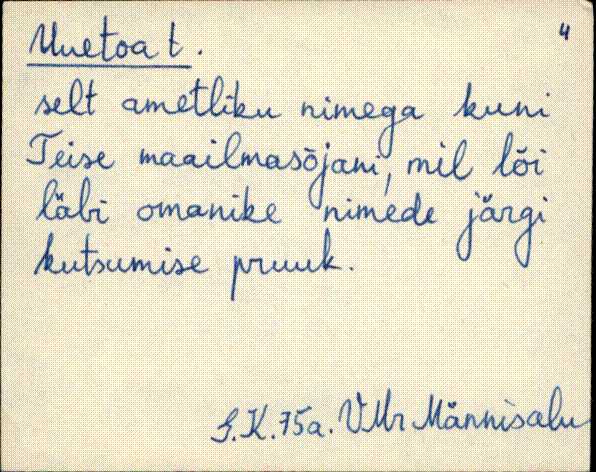 Uuetoa t.
4
selt ametliku nimega kuni
Teise maailmasõjani, mil lõi
läbi omanike nimede järgi
kutsumise pruuk.
S.K.75a. VMr Männisalu